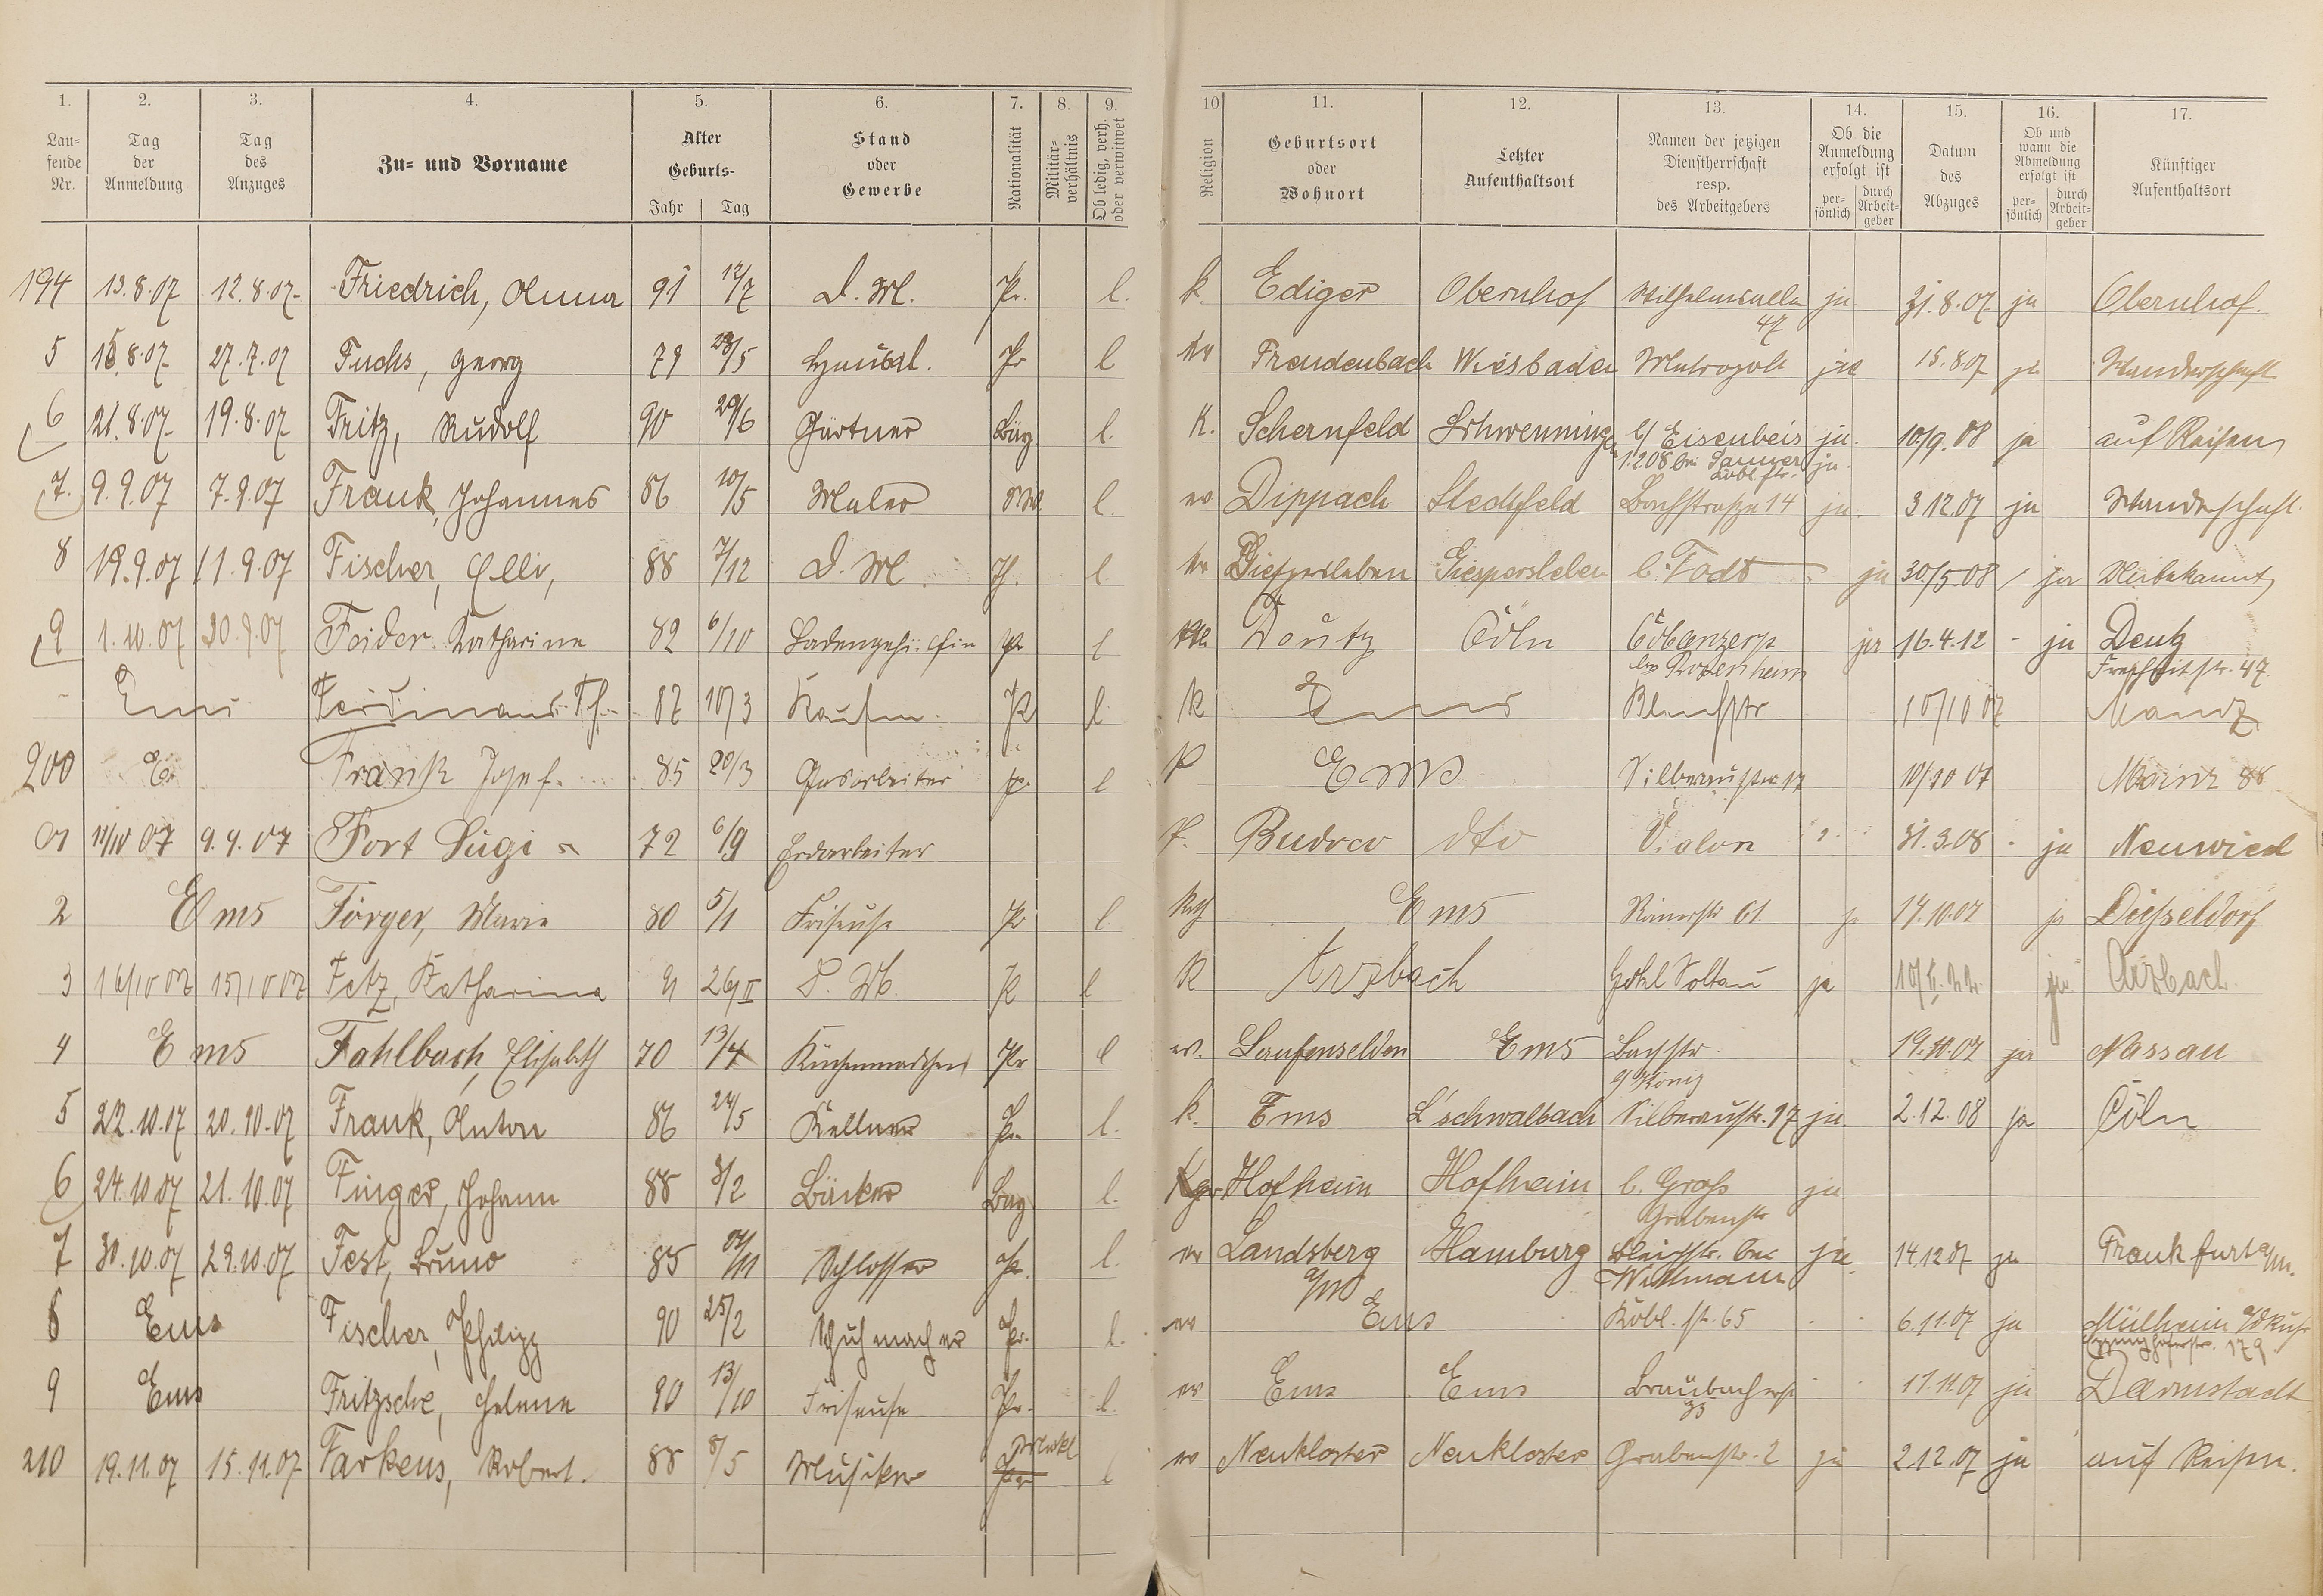 1. 2. 3. 4. 5. 6. 7. 8. 9. 10 11. 12. 13. 14. 15. 16. 17.
Lau-fende Nr. Tag der Anmeldung Tag des Anzuges Zu- und Vorname Alter Geburts- Jahr Tag Stand oder Gewerbe Nationalität Militär-verhältnis Ob ledig, verh. oder verwitwet Religion Geburtsort oder Wohnort Letzter Aufenthaltsort Namen der jetzigen Dienstherrschaft resp. des Arbeitgebers Ob die Anmeldung erfolgt ist per-sönlich durch Arbeit-geber Datum des Abzuges Ob und wann die Abmeldung erfolgt ist per-sönlich durch Arbeit-geber Künftiger Aufenthaltsort
194 13.8.07 12.8.07 Friedrich, Anna 91 12/7 D. M. Pr. l. k. Ediger Obernhof Wilhelmsallee 47 ja 31.8.07 ja Obernhof.
5 15.8.07 27.7.07 Fuchs, Georg 79 28/5 Hausdl. Pr l ev Freudenbach Wiesbaden Metropole ja 15.8.07 ja Wanderschaft
6 21.8.07 19.8.07 Fritz, Rudolf 90 29/6 Gärtner Bay l. K. Schernfeld Schwenningen b/ Eisenbeis ja 10/9.08 ja auf Reisen
1.2.08 bei ja
7. 9.9.07 7.9.07 Frank, Johannes 86 10/5 Maler l. ev Dippach Stedtfeld Bachstraße 14 ja 3 12.07 ja Wanderschaft.
8 19.9.07 11.9.07 Fischer, Elli, 88 7/12 D. M. l. ev Giespersleben b. Todt ja 30/5.08 ja Unbekannt
9 1.10.07 30.9.07 Feider Katharine 82 6/10 Pr l Deutz Cöln Coblenzerstr bei Rosenheim ja 16.4.12 - ja Deutz
Freiheitstr. 47
Ems Ferdinand Th. 87 10/3 Kaufm. Pr l K Ems 10/10 07 Mainz
200 E. Frank Josef. 85 20/3 Gasarbeiter Pr. l K Ems Silberaustr 17 10/10 07 Mainz 88
01 11/10 07 9.9.07 Fort Luigi 72 6/9 Erdarbeiter K. Budoco dto 31.3.08 - ja Neuwied
2 Ems Förger, Marie 80 5/1 Friseuse Pr l Ems Römerstr 61. 14.10.07 ja Düsseldorf
3 16/10 07 15/10 07 Fetz, Katharina 91 26/II D. M. Pr l K Arzbach ja ja Arzbach
4 Ems Fahlbach, Elisabeth 70 13/4 Küchenmädchen Pr l ev. Laufenselden Ems Bachstr 19.10.07 ja Nassau
5 22.10.07 20.10.07 Frank, Anton 86 24/5 Kellner Pr. l. k. Ems L'schwalbach b/ König Silberaustr. 17 ja. 2.12.08 ja Cöln
6 24.10.07 21.10.07 Finger, Johann 88 3/2 Bäcker Bay l. Hofheim Hofheim b. Groß Grabenstr ja
7 30.10.07 29.10.07 Fest, Bruno 85 Schlosser Pr. l. ev Landsberg a/W Hamburg Bleichstr. bei Wittmann ja 14.12.07 ja Frankfurt a/m.
8 Ems Fischer, Philipp 90 25/2 Schuhmacher Pr. l. ev Ems Kobl. str. 65 6.11.07 ja Mülheim a/d Ruhr
179
9 Ems Fritzsche, Helene 90 13/10 Friseuse Pr. l. ev Ems Ems Braubacherstr 33 11.11.07 ja Darmstadt
210 19.11.07 15.11.07 Farkens, Robert. 88 8/5 Musiker Pr Meckl. l ev Neukloster Neukloster Grabenstr. 2 ja 2.12.07 ja auf Reisen.